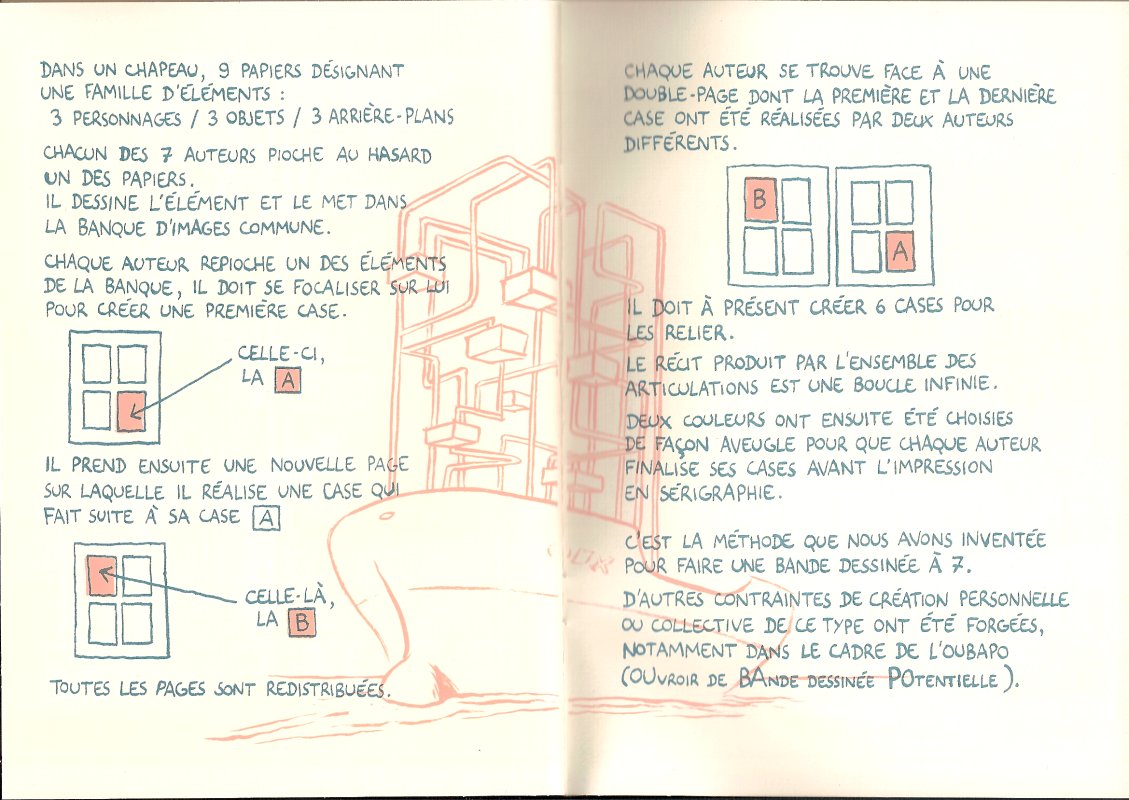 DANS UN CHAPEAU, 9 PAPIERS DÉSIGNANT
UNE FAMILLE D'ÉLÉMENTS :
3 PERSONNAGES / 3 OBJETS / 3 ARRIÈRE-PLANS
CHACUN DES 7 AUTEURS PIOCHE AU HASARD
UN DES PAPIERS.
IL DESSINE L'ÉLÉMENT ET LE MET DANS
LA BANQUE D'IMAGES COMMUNE.
CHAQUE AUTEUR REPIOCHE UN DES ÉLÉMENTS
DE LA BANQUE, IL DOIT SE FOCALISER SUR LUI
POUR CRÉER UNE PREMIÈRE CASE.
CELLE-CI,
LA A
IL PREND ENSUITE UNE NOUVELLE PAGE
SUR LAQUELLE IL RÉALISE UNE CASE QUI
FAIT SUITE À SA CASE A
CELLE-LÀ,
LA B
TOUTES LES PAGES SONT REDISTRIBUÉES.
CHAQUE AUTEUR SE TROUVE FACE À UNE
DOUBLE-PAGE DONT LA PREMIÈRE ET LA DERNIÈRE
CASE ONT ÉTÉ RÉALISÉES PAR DEUX AUTEURS
DIFFÉRENTS.
B
A
IL DOIT À PRÉSENT CRÉER 6 CASES POUR
LES RELIER.
LE RÉCIT PRODUIT PAR L'ENSEMBLE DES
ARTICULATIONS EST UNE BOUCLE INFINIE.
DEUX COULEURS ONT ENSUITE ÉTÉ CHOISIES
DE FAÇON AVEUGLE POUR QUE CHAQUE AUTEUR
FINALISE SES CASES AVANT L'IMPRESSION
EN SÉRIGRAPHIE.
C'EST LA MÉTHODE QUE NOUS AVONS INVENTÉE
POUR FAIRE UNE BANDE DESSINÉE À 7.
D'AUTRES CONTRAINTES DE CRÉATION PERSONNELLE
OU COLLECTIVE DE CE TYPE ONT ÉTÉ FORGÉES,
NOTAMMENT DANS LE CADRE DE L'OUBAPO
(OUVROIR DE BANDE DESSINÉE POTENTIELLE).